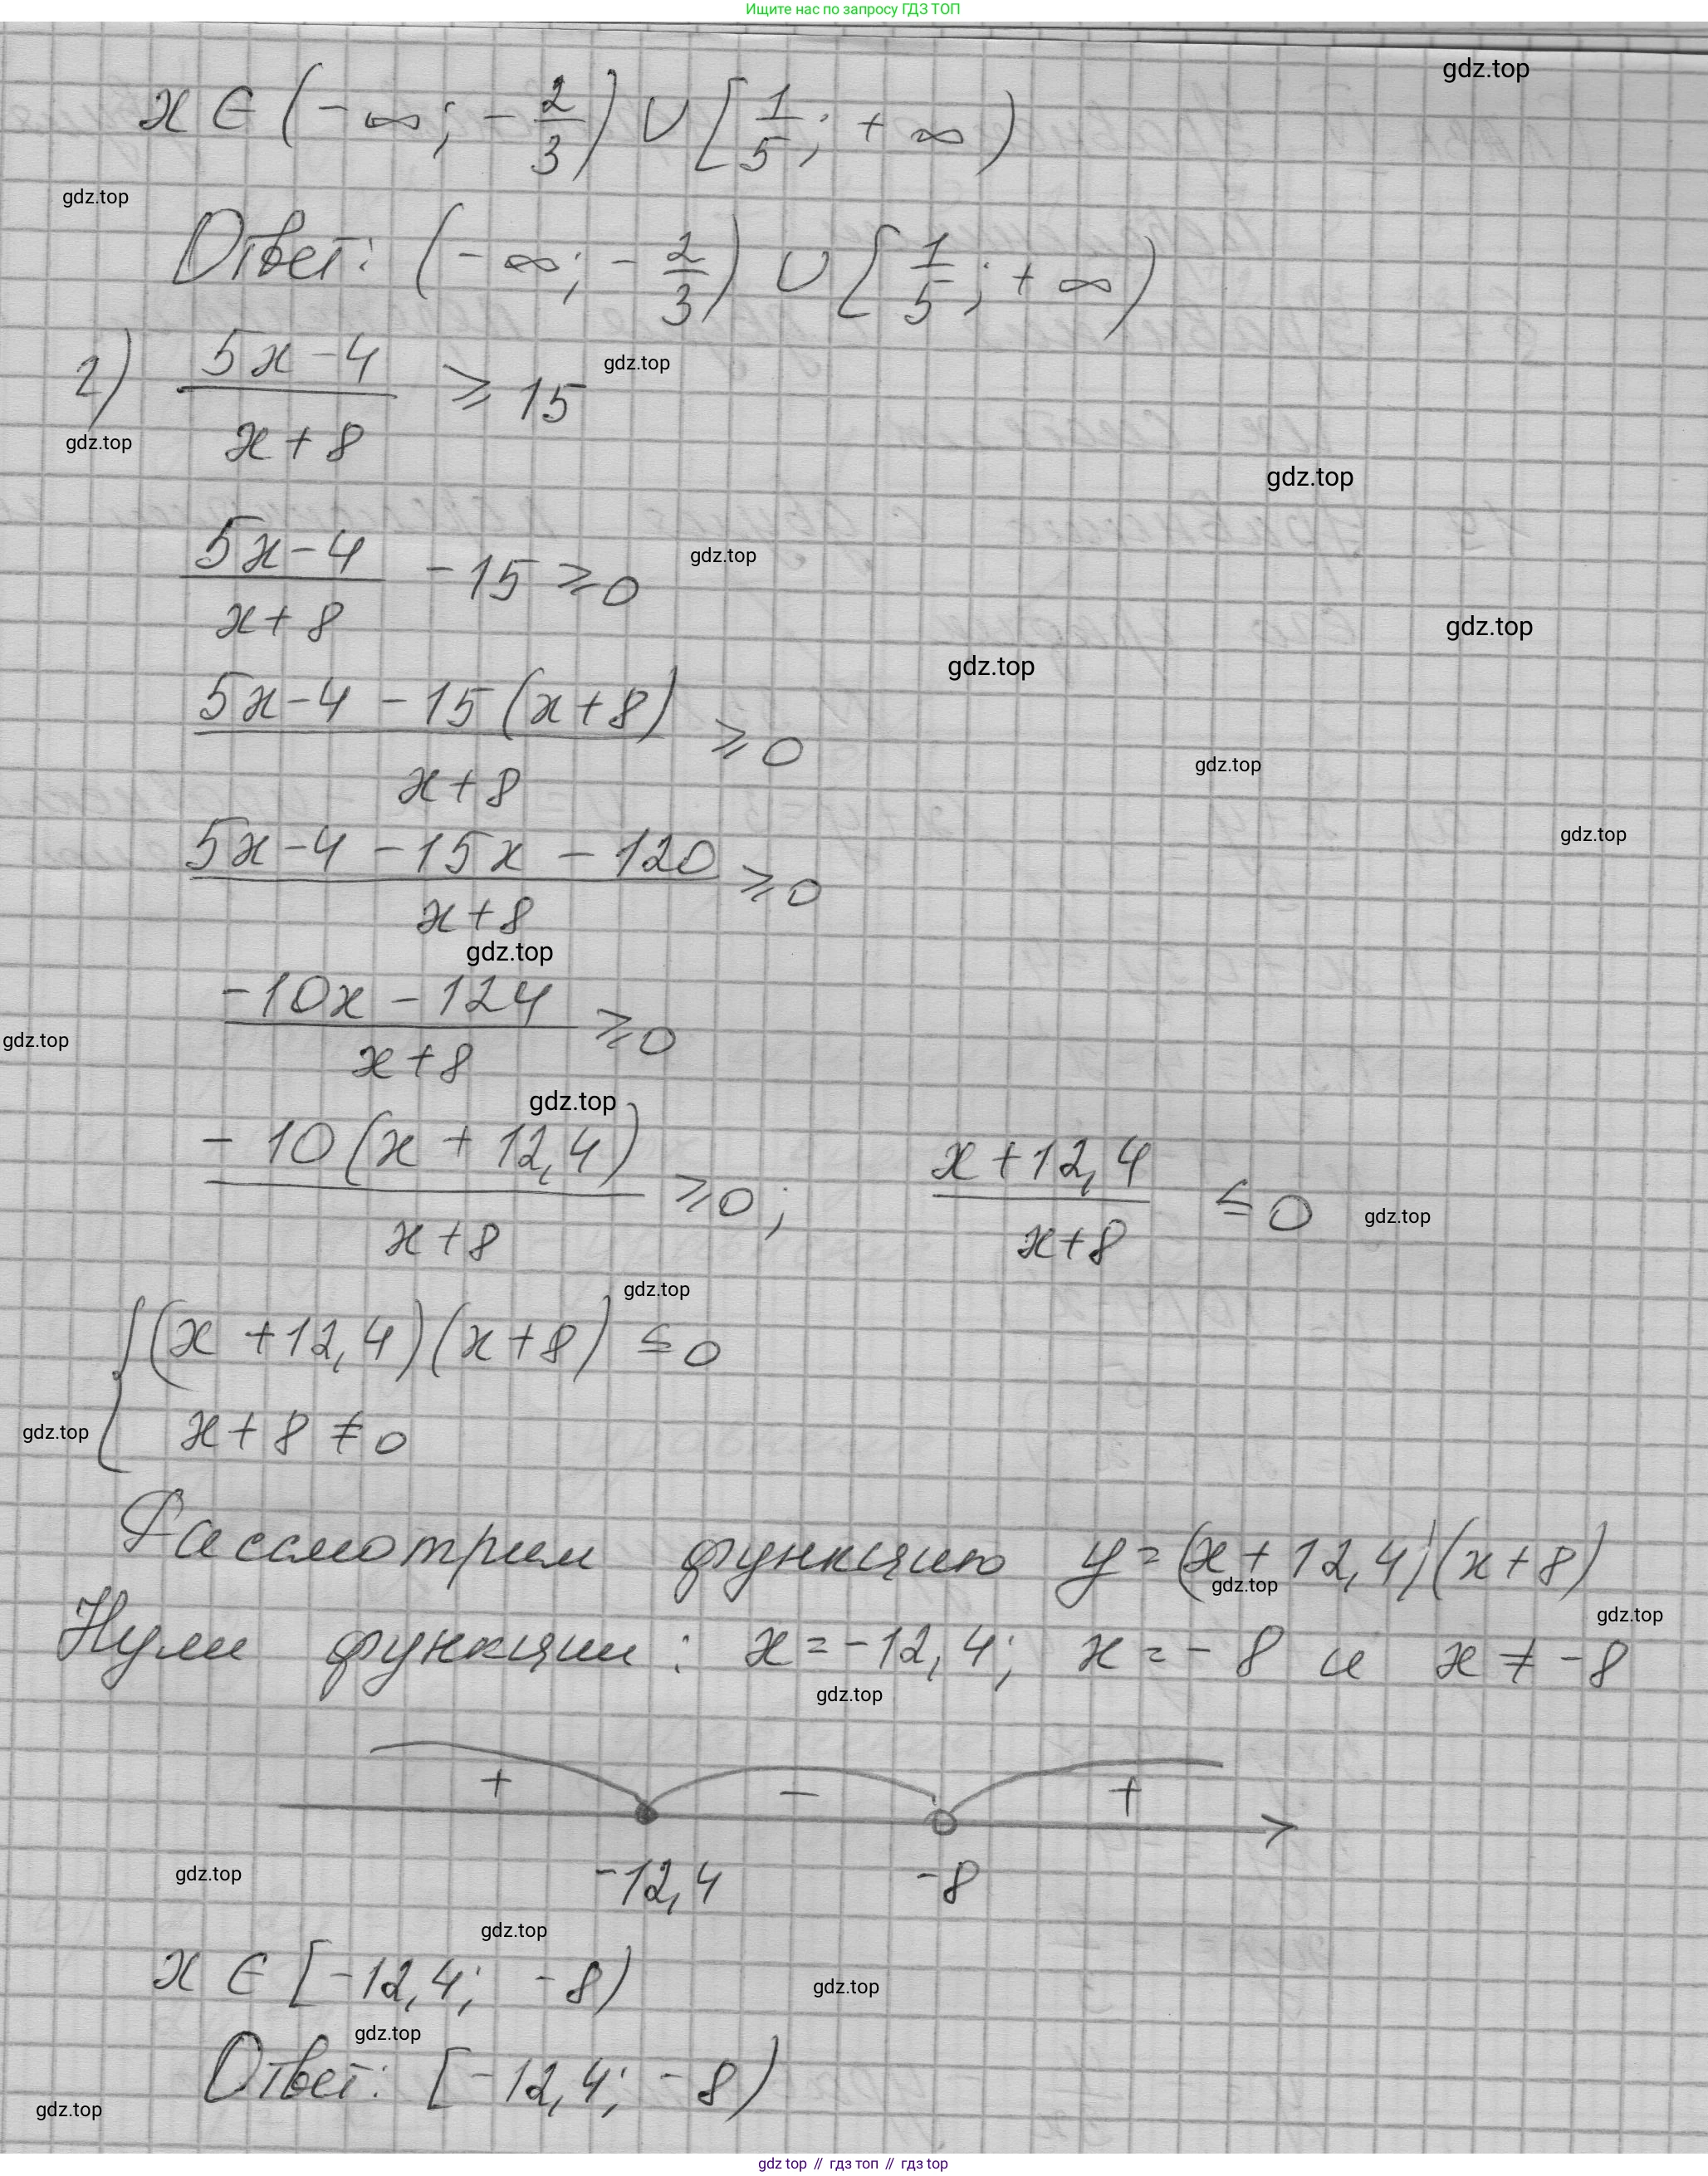 Ищите нас по запросу ГДЗ ТОП
gdz.top
x ∈ (-∞; -2/3) ∪ [1/5; +∞)
gdz.top
Ответ: (-∞; -2/3) ∪ [1/5; +∞)
2) (5x-4)/(x+8) ⩾ 15
gdz.top
gdz.top
gdz.top
(5x-4)/(x+8) - 15 ⩾ 0
gdz.top
gdz.top
gdz.top
(5x-4-15(x+8))/(x+8) ⩾ 0
gdz.top
gdz.top
(5x-4-15x-120)/(x+8) ⩾ 0
gdz.top
(-10x-124)/(x+8) ⩾ 0
gdz.top
gdz.top
(-10(x+12,4))/(x+8) ⩾ 0; (x+12,4)/(x+8) ≤ 0
gdz.top
gdz.top
{(x+12,4)(x+8) ≤ 0
x+8 ≠ 0
gdz.top
Рассмотрим функцию y=(x+12,4)(x+8)
gdz.top
gdz.top
Нули функции: x=-12,4; x=-8 и x ≠ -8
gdz.top
+ - +
-12,4 -8
gdz.top
gdz.top
x ∈ [-12,4; -8)
gdz.top
gdz.top
Ответ: [-12,4; -8)
gdz.top
gdz top // гдз топ // гдз top